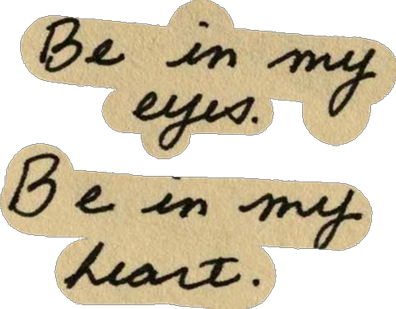 Be in my
eyes.
Be in my
heart.